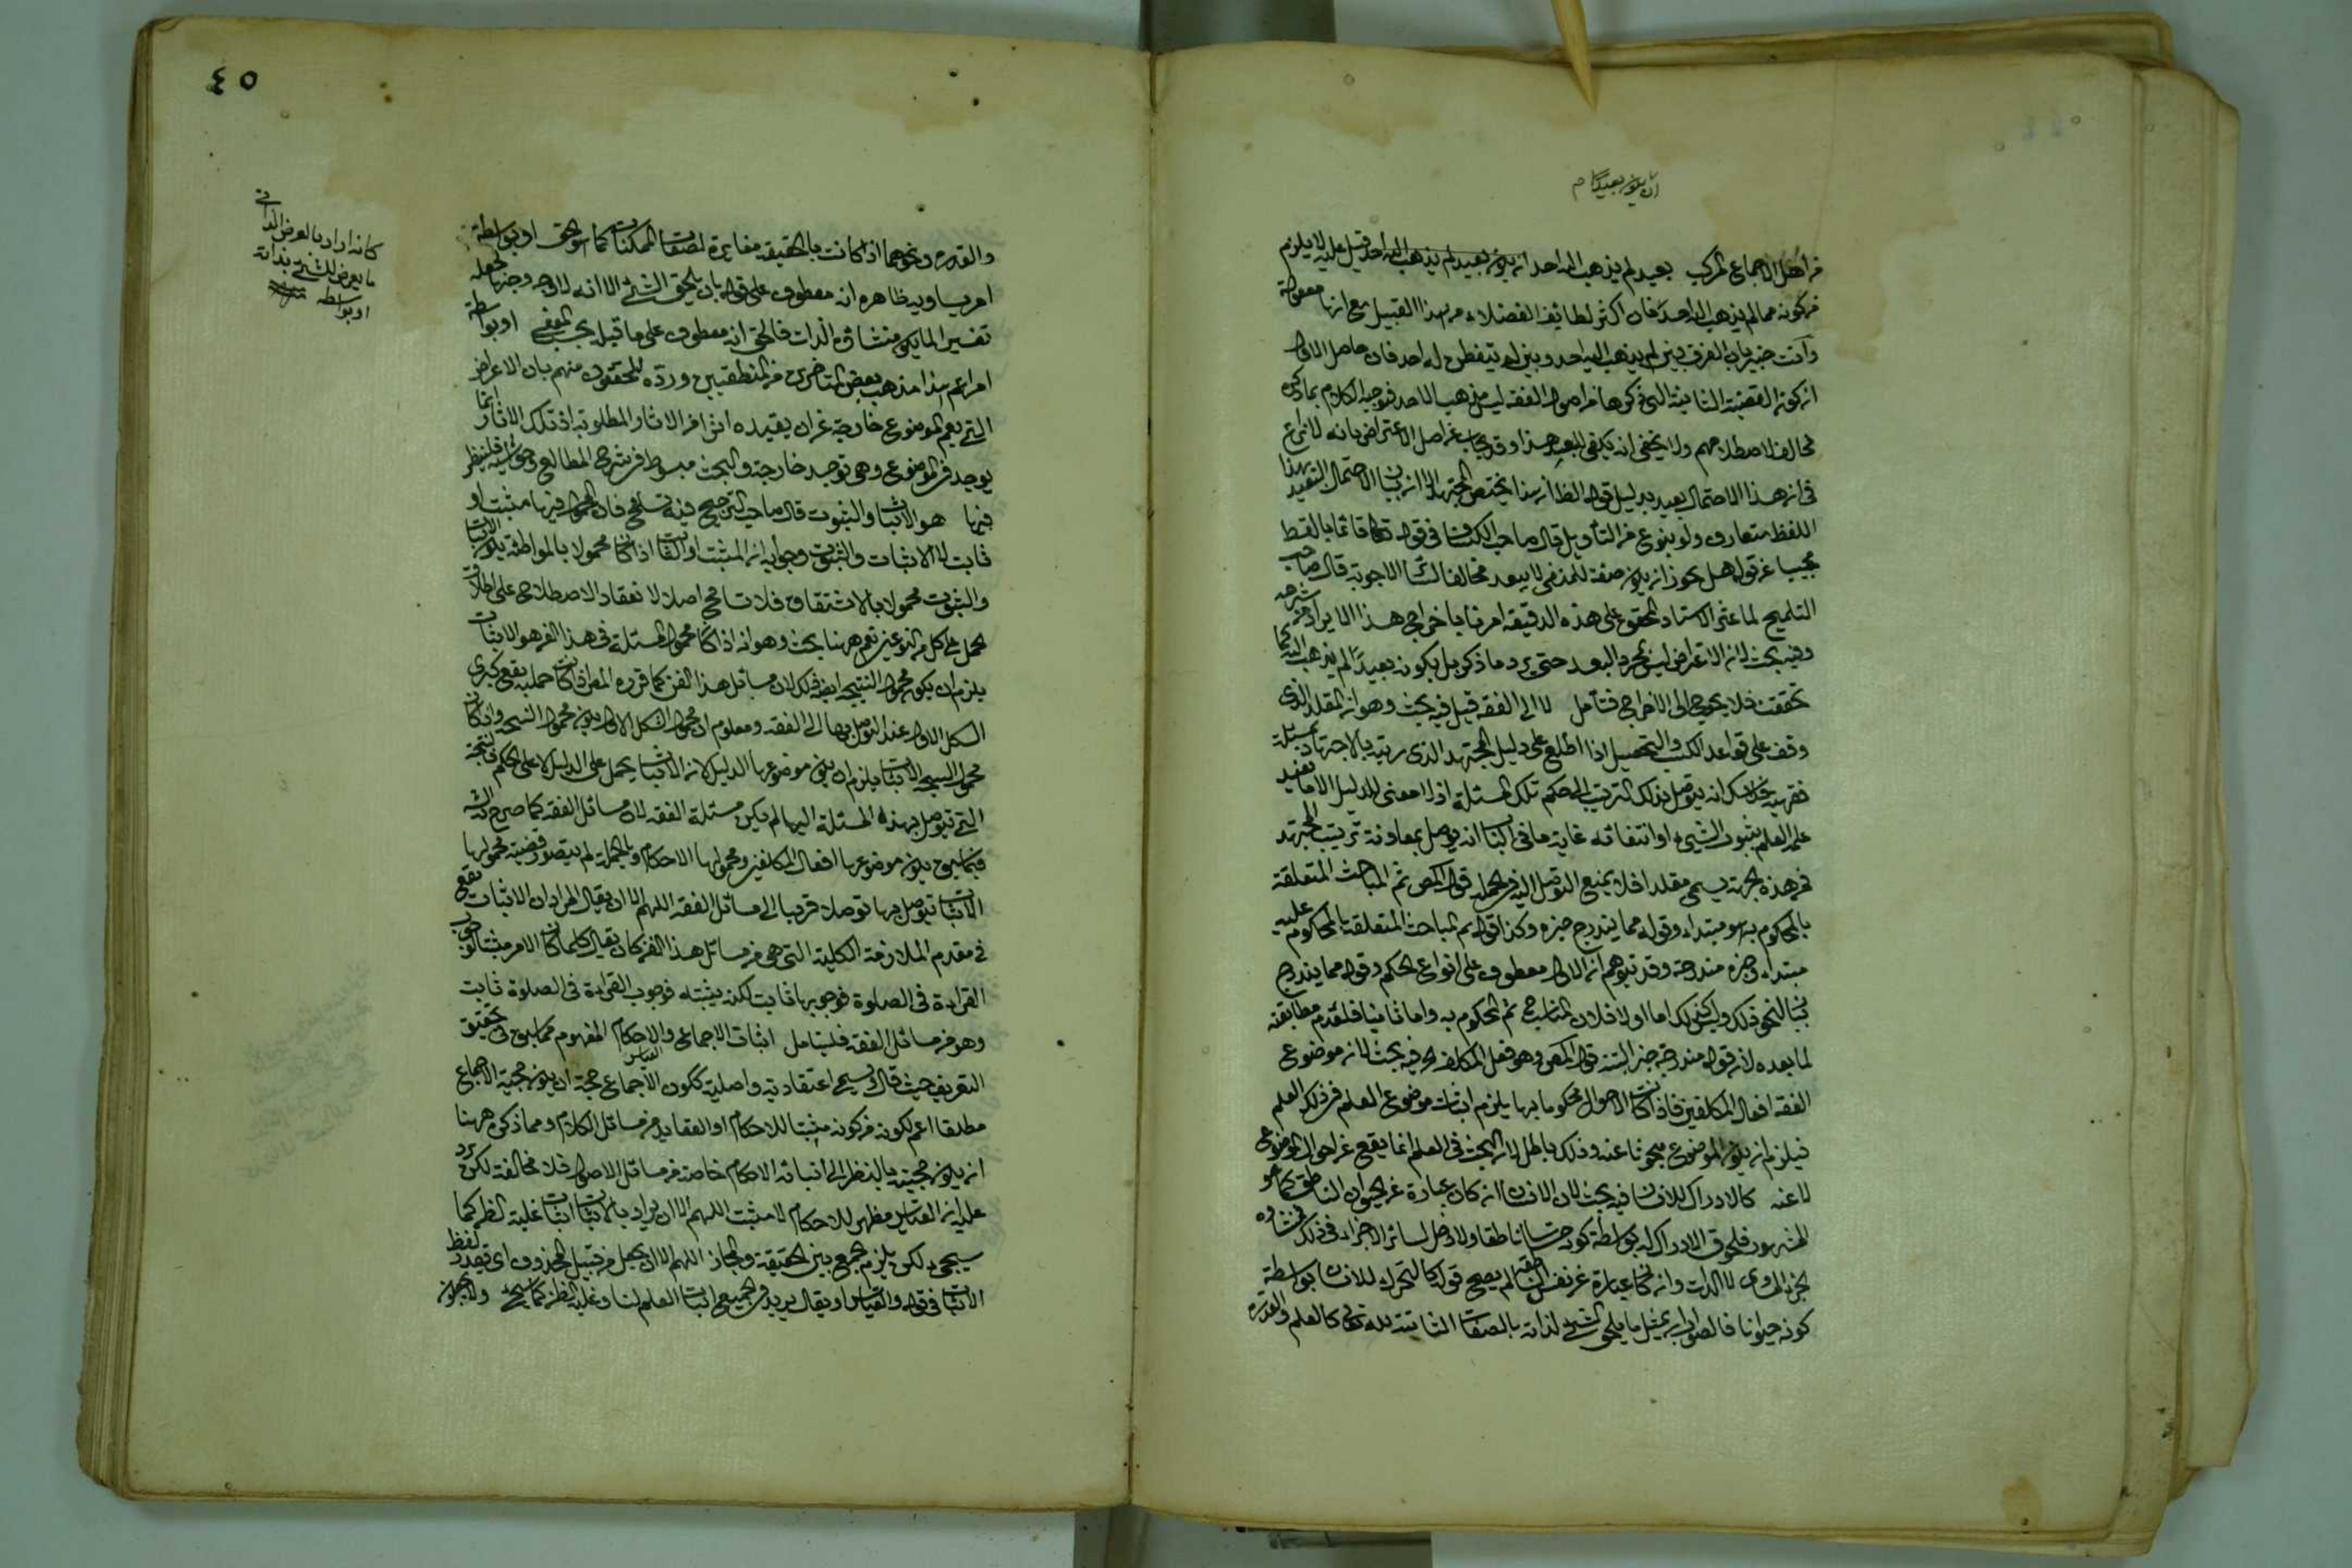 ان يكون بعيدا م
من اهل الاجماع المركب بعيد لم يذهب اليه احد ان يكون بعيد لم يذهب اليه احد قيل عليه لا يلزم
من كونه مما لم يذهب اليه احد فان اكثر لطائف الفضلاء من هذا القبيل مع انها مقبولة
وانت خبير بان الفرق بين لم يذهب اليه احد وبين لم يتفطن له احد فان حاصل الاول
ان كون القضية الثانية التي ذكرها من اصول الفقه ليس مذهب الاحد فتوجيه الكلام بما ذكره
مخالف لاصطلاحهم ولا يخفى انه يكفي للبعد هذا وقد يجاب عن اصل الاعتراض بانه لا نزاع
في ان هذا الاحتمال بعيد بدليل قوله الظاهر ان هذا يختص بالمجتهد الا ان بيان الاحتمال البعيد
اللفظ متعارف ولو بنوع من التأويل قال صاحب الكشاف في قوله تعالى قائما بالقسط
مجيبا عن قوله هل يجوز ان يكون صفة للمنفي لا يبعد مخالفا لسائر الاجوبة قال صاحب
التلميح لما عثر الاستاد المحقق على هذه الدقيقة امرنا باخراج هذا الايراد من شرحه
وفيه بحث لان الاعتراض ليس بمجرد البعد حتى يرد ما ذكر بل بكونه بعيدا لم يذهب اليه كما
تحققت فلا يحوج الى الاخراج فتأمل لا الى الفقه قيل فيه بحث وهو ان المقلد الذي
وقف على قواعد الكسب والتحصيل اذا اطلع على دليل المجتهد الذي رتبه بالاجتهاد في مسئلة
فقهية يمكن انه يتوصل بذلك الترتيب الى حكم تلك المسئلة اذ لا معنى للدليل الا ما يفيد
علمه العلم بثبوت الشيء او انتفائه غاية ما في الباب انه يتوصل بمعاونة ترتيب المجتهد
فمن هذه الجهة يسمى مقلدا فلا يمنع التوصل اليه في الجملة قوله المص ثم المباحث المتعلقة
بالمحكوم به هو مبتداء وقوله مما يندرج خبره وكذا قوله ثم المباحث المتعلقة بالمحكوم عليه
مبتداء وخبره مندرجة وقد يتوهم ان الاول معطوف على انواع الحكم وقوله مما يندرج
لما بعده لان قوله مندرجة خبر البتة قوله المص وهو فعل المكلف فيه بحث لانه موضوع
الفقه افعال المكلفين فاذا كانت الاحوال محكوما بها يلزم اثبات موضوع العلم في ذلك العلم
فيلزم ان يكون الموضوع مبحوثا عنه وذلك باطل لان البحث في العلم انما يقع عن احوال الموضوع
لا عنه كالادراك للانسان فيه بحث لان الانسان ان كان عبارة عن الحيوان الناطق كما هو
المشهور فلحوق الادراك له بواسطة كونه حساسا ناطقا ولا دخل لسائر الاجزاء في ذلك فمنشاؤه
الجزء المساوي لا الذات وان كان عبارة عن نفس الناطقة لم يصح قوله كالتحرك للانسان بواسطة
كونه حيوانا فالصواب ان يمثل ما يلحق الشيء لذاته بالصفات الثابتة لله تعالى كالعلم والقدرة
٤٥
والقدرة ونحوهما اذا كانت بالحقيقة مغايرة لصفات الممكنات كما هو الحق او بواسطة
امر يساويه ظاهره انه معطوف على قوله بان يلحق الشيء الا انه لا وجه وجيها لجعله
تفسير الما يكون منشاؤه الذات فالحق انه معطوف على ما قبله بحسب المعنى او بواسطة
امر اعم هذا مذهب بعض المتاخرين من المنطقيين ورده المحققون منهم بان الاعراض
التي يعم الموضوع خارجة عن ان يفيده اثرا من الاثار المطلوبة اذ تلك الاثار انما
يوجد في الموضوع وهي توجد خارجة والبحث مبسوط في شرح المطالع وحواشيه فلينظر
فيها هو الاثبات والثبوت قال صاحب الترجيح فيه تسامح فان المحمول فيها مثبت او
ثابت لا الاثبات والثبوت وجوابه ان المثبت او الثابت اذا كان محمولا بالمواطئة يكون الاثبات
والثبوت محمولا بالاشتقاق فلا تسامح اصلا لانعقاد الاصطلاح على اطلاق
المحمل على كل من النوعين نعم ههنا بحث وهو انه اذا كان محمول المسئلة في هذا الفن هو الاثبات
يلزم ان يكون محمول النتيجة ايضا كذلك لان مسائل هذا الفن كما قرره المص اذا كانت حملية يقع كبرى
الشكل الاول عند التوصل بها الى الفقه ومعلوم ان محمول الشكل الاول يكون محمول النتيجة واذا كان
محمول النتيجة الاثبات يلزم ان يكون موضوعها الدليل لان الاثبات يحمل على الدليل لا على الحكم فالنتيجة
التي يتوصل بهذه المسئلة اليها لم يكن مسئلة الفقه لان مسائل الفقه كما صرح به الش
فيما سبق يكون موضوعها افعال المكلفين ومحمولها الاحكام وبالجملة لم يتصور قضية محمولها
الاثبات يتوصل بها توصلا قريبا الى مسائل الفقه اللهم الا ان يقال المراد ان الاثبات يقع
في مقدم الملازمة الكلية التي هي من مسائل هذا الفن كان يقال كلما كان الامر مثبتا لوجوب
القراءة في الصلوة فوجوبها ثابت لكنه يثبته فوجوب القراءة في الصلوة ثابت
وهو من مسائل الفقه فليتامل اثبات الاجماع والاحكام المفهوم مما سبق في تحقيق
التعريف حيث قال يسمى اعتقادية واصلية ككون الاجماع حجة ان يكون حجية الاجماع
مطلقا اعم لكونه من كونه مثبتا للاحكام او العقايد من مسائل الكلام ومما ذكر ههنا
ان يكون حجيته بالنظر الى اثباته الاحكام خاصة من مسائل الاصول فلا مخالفة لكن يرد
عليه ان القياس مظهر للاحكام لا مثبت اللهم الا ان يراد بالاثبات اثبات غلبة الظن كما
سيجيء لكن يلزم الجمع بين الحقيقة والمجاز اللهم الا ان يجعل من قبيل المحذوف اي قصد لفظ
الاثبات في قوله والقياس او يقال يريد في الجميع اثبات العلم لنا وغلبة الظن كما سيجيء ولا يجوز
كانه اراد بالعرض الذاتي
ما يعرض للشيء بذاته
او بواسطة